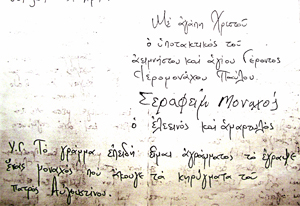 Μὲ ἀγάπη Χριστοῦ
ὁ ὑποτακτικὸς τοῦ
ἀειμνήστου καὶ ἁγίου Γέροντος
Ἱερομονάχου Παύλου.
Σεραφεὶμ Μοναχός
ὁ ἐλεεινὸς καὶ ἁμαρτωλός
Υ.Γ. Τὸ γράμμα ἐπειδὴ εἶμαι ἀγράμματος τὸ ἔγραψε
ἕνας μοναχὸς ποὺ ἄκουγε τὰ κηρύγματα τοῦ
πατρὸς Αὐγουστίνου.